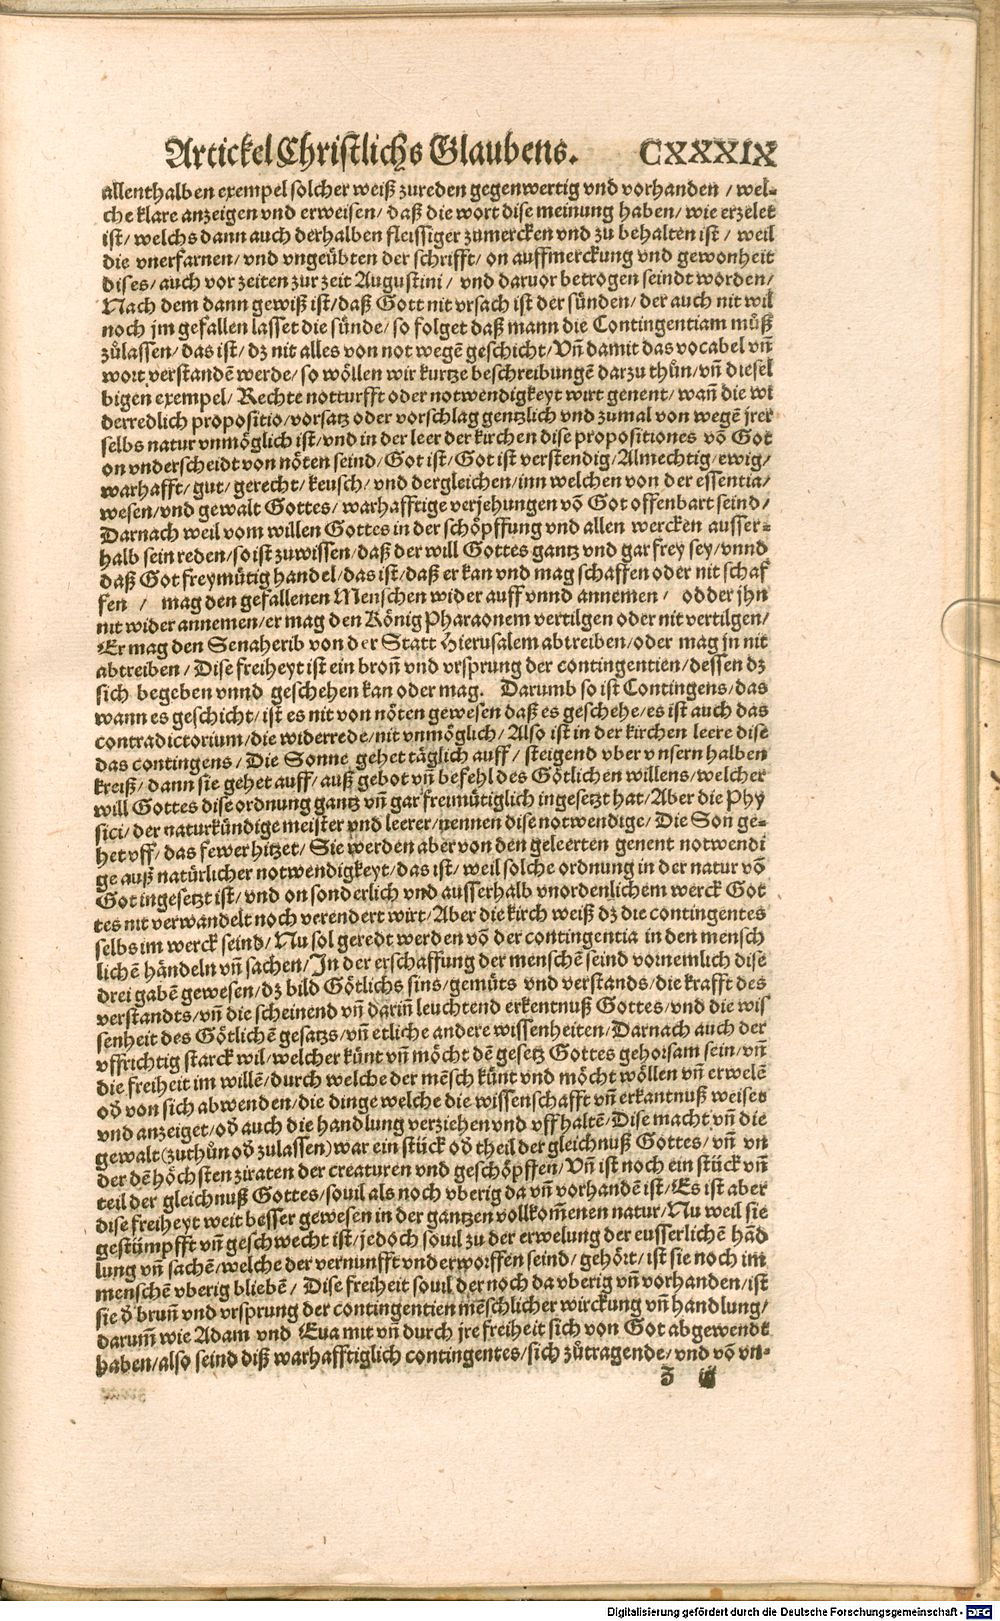 Artickel Christlichs Glaubens. CXXXIX
allenthalben exempel solcher weiß zureden gegenwertig vnd vorhanden / wel-
che klare anzeigen vnd erweisen / daß die wort dise meinung haben / wie erzelet
ist / welchs dann auch derhalben fleissiger zumercken vnd zu behalten ist / weil
die vnerfarnen / vnd vngeübten der schrifft / on auffmerckung vnd gewonheit
dises / auch vor zeiten zur zeit Augustini / vnd daruor betrogen seindt worden /
Nach dem dann gewiß ist / daß Gott nit vrsach ist der sünden / der auch nit wil
noch jm gefallen lasset die sünde / so folget daß mann die Contingentiam můß
zůlassen / das ist / dz nit alles von not wegē geschicht / Vñ damit das vocabel vñ
wort verstandē werde / so wöllen wir kurtze beschreibungē darzu thůn / vñ diesel
bigen exempel / Rechte notturfft oder notwendigkeyt wirt genent / wañ die wi
derredlich propositio / vorsatz oder vorschlag gentzlich vnd zumal von wegē jrer
selbs natur vnmöglich ist / vnd in der leer der kirchen dise propositiones võ Got
on vnderscheidt von nöten seind / Got ist / Got ist verstendig / Almechtig / ewig /
warhafft / gut / gerecht / keusch / vnd dergleichen / inn welchen von der essentia /
wesen / vnd gewalt Gottes / warhafftige verjehungen võ Got offenbart seind /
Darnach weil vom willen Gottes in der schöpffung vnd allen wercken ausser-
halb sein reden / so ist zuwissen / daß der will Gottes gantz vnd gar frey sey / vnnd
daß Got freymütig handel / das ist / daß er kan vnd mag schaffen oder nit schaf
fen / mag den gefallenen Menschen wider auff vnnd annemen / odder jhn
nit wider annemen / er mag den König Pharaonem vertilgen oder nit vertilgen /
Er mag den Senaherib von der Statt Hierusalem abtreiben / oder mag jn nit
abtreiben / Dise freiheyt ist ein broñ vnd vrsprung der contingentien / dessen dz
sich begeben vnnd geschehen kan oder mag. Darumb so ist Contingens / das
wann es geschicht / ist es nit von nöten gewesen daß es geschehe / es ist auch das
contradictorium / die widerrede / nit vnmöglich / Also ist in der kirchen leere dise
das contingens / Die Sonne gehet täglich auff / steigend vber vnsern halben
kreiß / dann sie gehet auff / auß gebot vñ befehl des Götlichen willens / welcher
will Gottes dise ordnung gantz vñ gar freimütiglich ingesetzt hat / Aber die Phy
sici / der naturkündige meister vnd leerer / nennen dise notwendige / Die Son ge-
het vff / das fewer hitzet / Sie werden aber von den geleerten genent notwendi
ge auß natürlicher notwendigkeyt / das ist / weil solche ordnung in der natur võ
Got ingesetzt ist / vnd on sonderlich vnd ausserhalb vnordenlichem werck Got
tes nit verwandelt noch verendert wirt / Aber die kirch weiß dz die contingentes
selbs im werck seind / Nu sol geredt werden võ der contingentia in den mensch
lichē händeln vñ sachen / In der erschaffung der menschē seind vornemlich dise
drei gabē gewesen / dz bild Götlichs sins / gemüts vnd verstands / die krafft des
verstandts / vñ die scheinend vñ dariñ leuchtend erkentnuß Gottes / vnd die wis
senheit des Götlichē gesatzs / vñ etliche andere wissenheiten / Darnach auch der
vffrichtig starck wil / welcher künt vñ möcht dē gesetz Gottes gehorsam sein / vñ
die freiheit im willē / durch welche der mēsch künt vnd möcht wöllen vñ erwelē
oð von sich abwenden / die dinge welche die wissenschafft vñ erkantnuß weiset
vnd anzeiget / oð auch die handlung verziehen vnd vffhaltē / Dise macht vñ die
gewalt (zuthůn oð zulassen) war ein stück oð theil der gleichnuß Gottes / vñ vn
der dē höchsten ziraten der creaturen vnd geschöpffen / Vñ ist noch ein stück vñ
teil der gleichnuß Gottes / souil als noch vberig da vñ vorhandē ist / Es ist aber
dise freiheyt weit besser gewesen in der gantzen vollkom̃enen natur / Nu weil sie
gestümpfft vñ geschwecht ist / jedoch souil zu der erwelung der eusserlichē hãd
lung vñ sachē / welche der vernunfft vnderworffen seind / gehört / ist sie noch im
menschē vberig bliebē / Dise freiheit souil der noch da vberig vñ vorhanden / ist
sie ð bruñ vnd vrsprung der contingentien mēschlicher wirckung vñ handlung /
darum̃ wie Adam vnd Eua mit vñ durch jre freiheit sich von Got abgewendt
haben / also seind diß warhafftiglich contingentes / sich zůtragende / vnd võ vn-
Digitalisierung gefördert durch die Deutsche Forschungsgemeinschaft - DFG